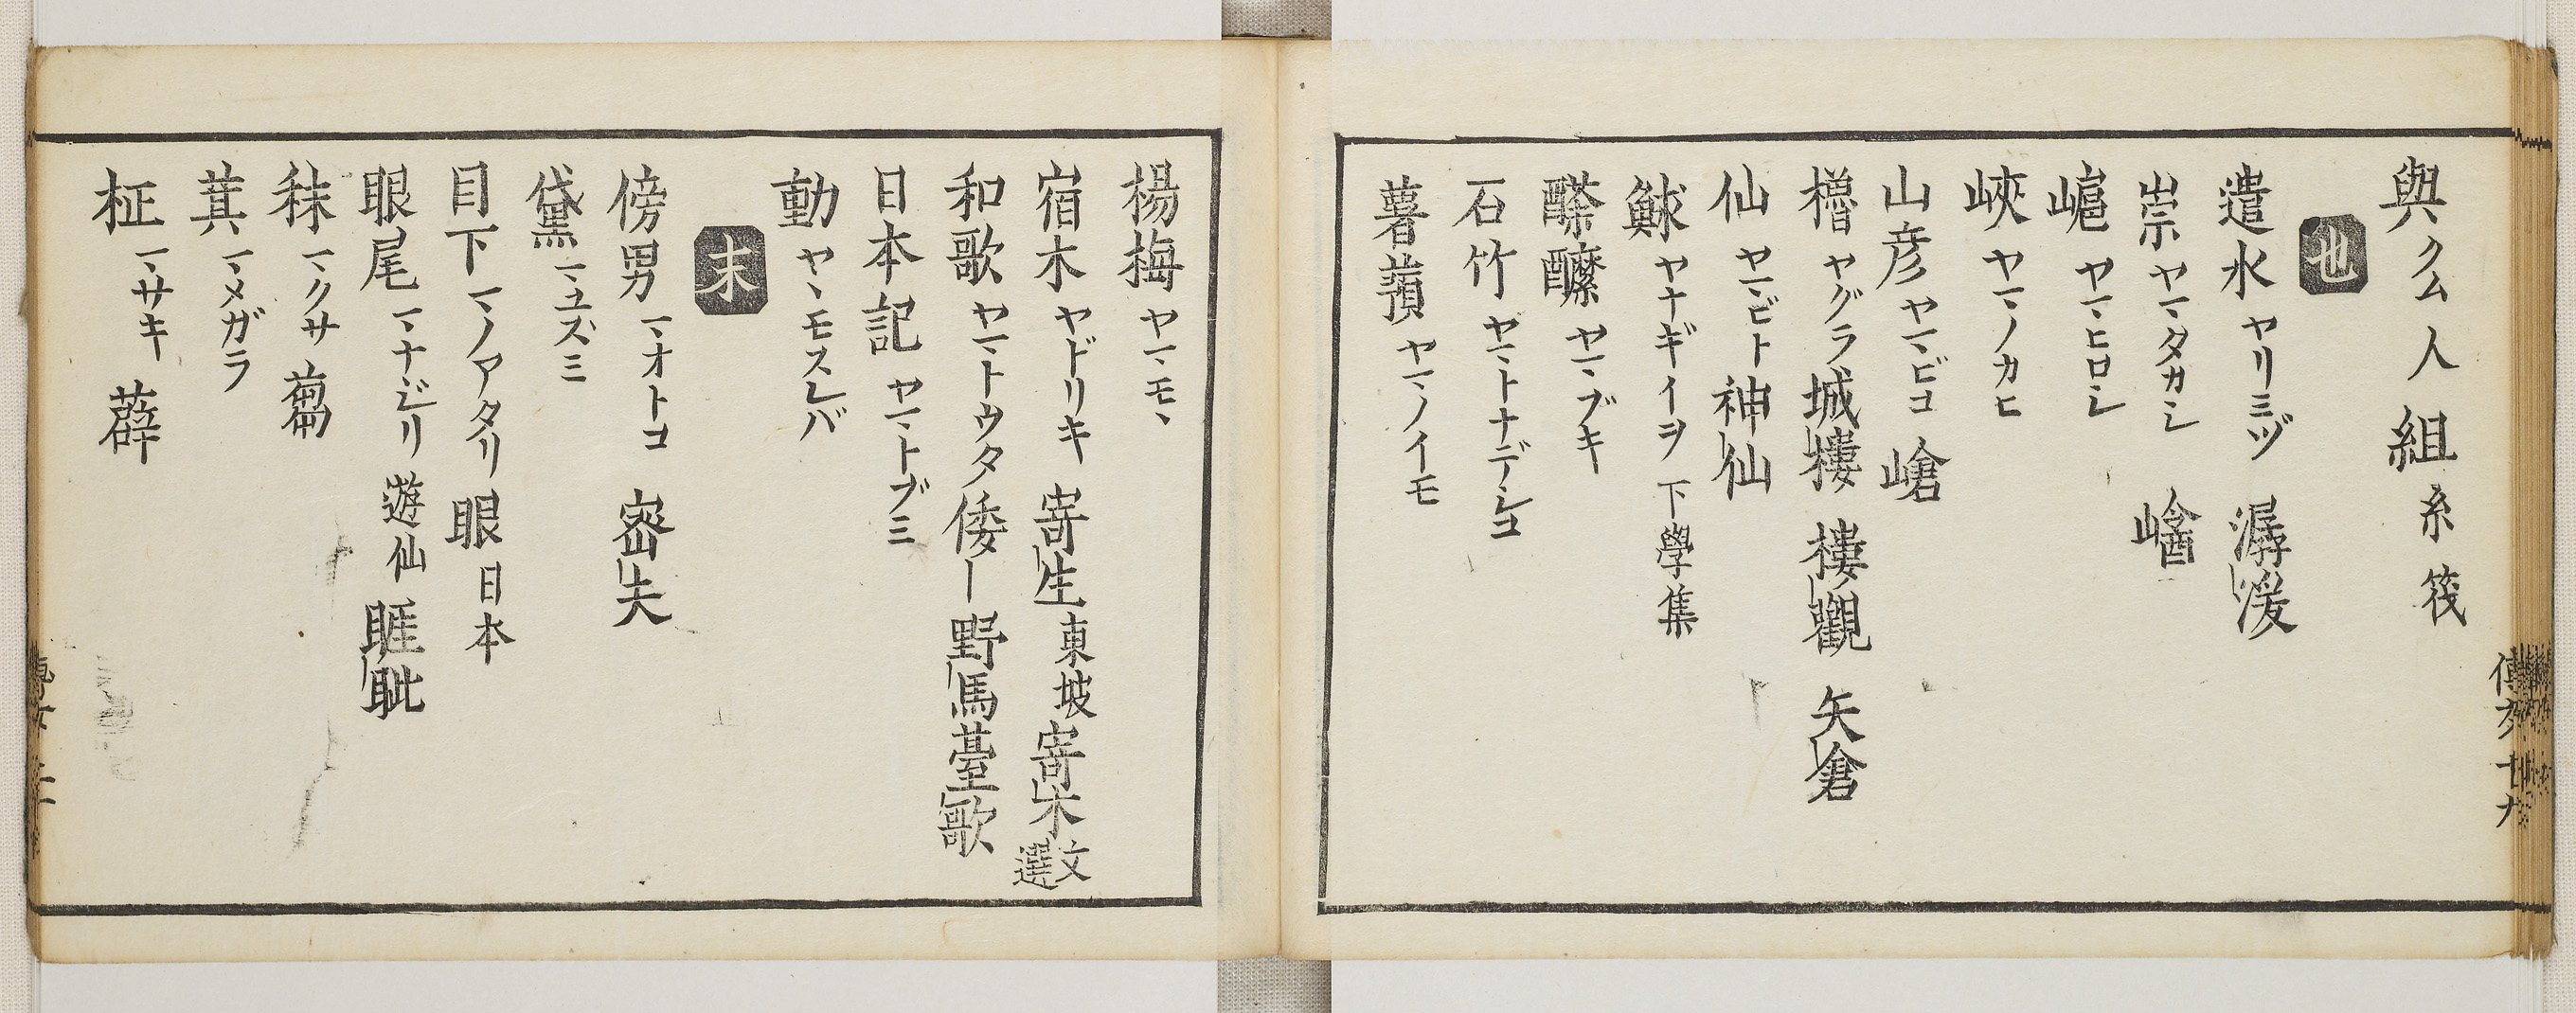 與クム人 組糸 筏
也
遣水ヤリミヅ 潺湲
崇ヤマタカシ 㟏
嵼ヤマヒロシ
峽ヤマノカヒ
山彦ヤマビコ 嵢
櫓ヤグラ 城樓 樓觀 矢倉
仙ヤマビト 神仙
鯄ヤナギイヲ 下學集
醾ヤマブキ
石竹ヤマトナデシコ
薯蕷ヤマノイモ
楊梅ヤマモヽ
宿木ヤドリキ 寄生東坡 寄木文選
和歌ヤマトウタ 倭ー 野馬臺歌
日本記ヤマトブミ
動ヤヽモスレバ
末
傍男マオトコ 密夫
黛マユズミ
目下マノアタリ 眼日本
眼尾マナジリ 遊仙 睚眦
秣マクサ 蒭
萁マメガラ
柾マサキ 薜
傳列 廿九